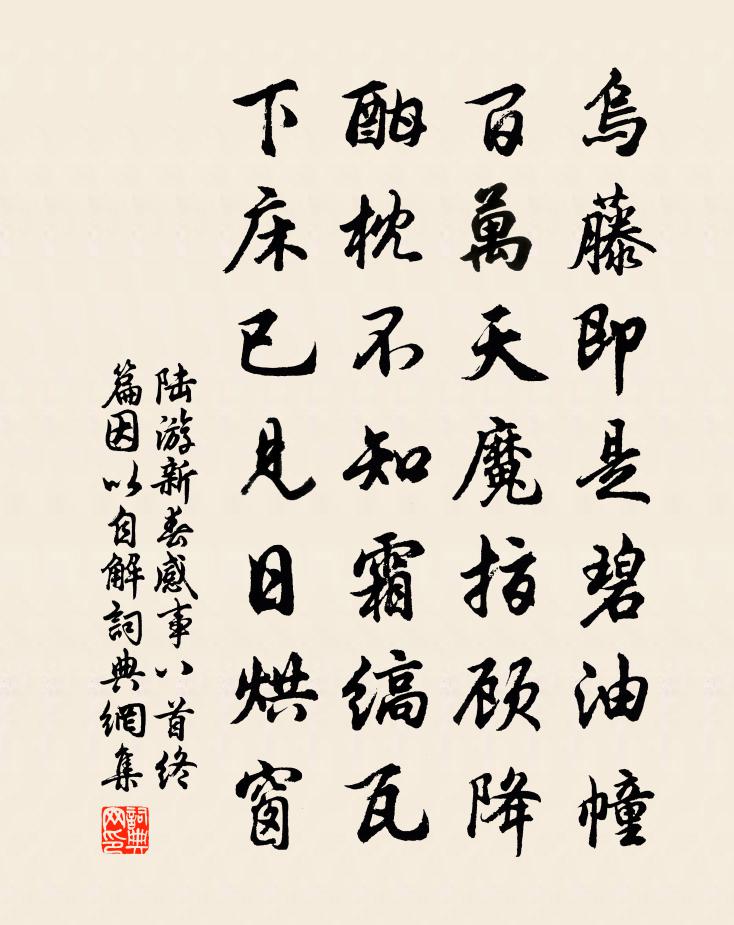 烏藤即是碧油幢
百萬天魔指顧降
酣枕不知霜縞瓦
下床已見日烘窗
陸游新春感事八首終
篇因以自解詞典網集
詞典网印